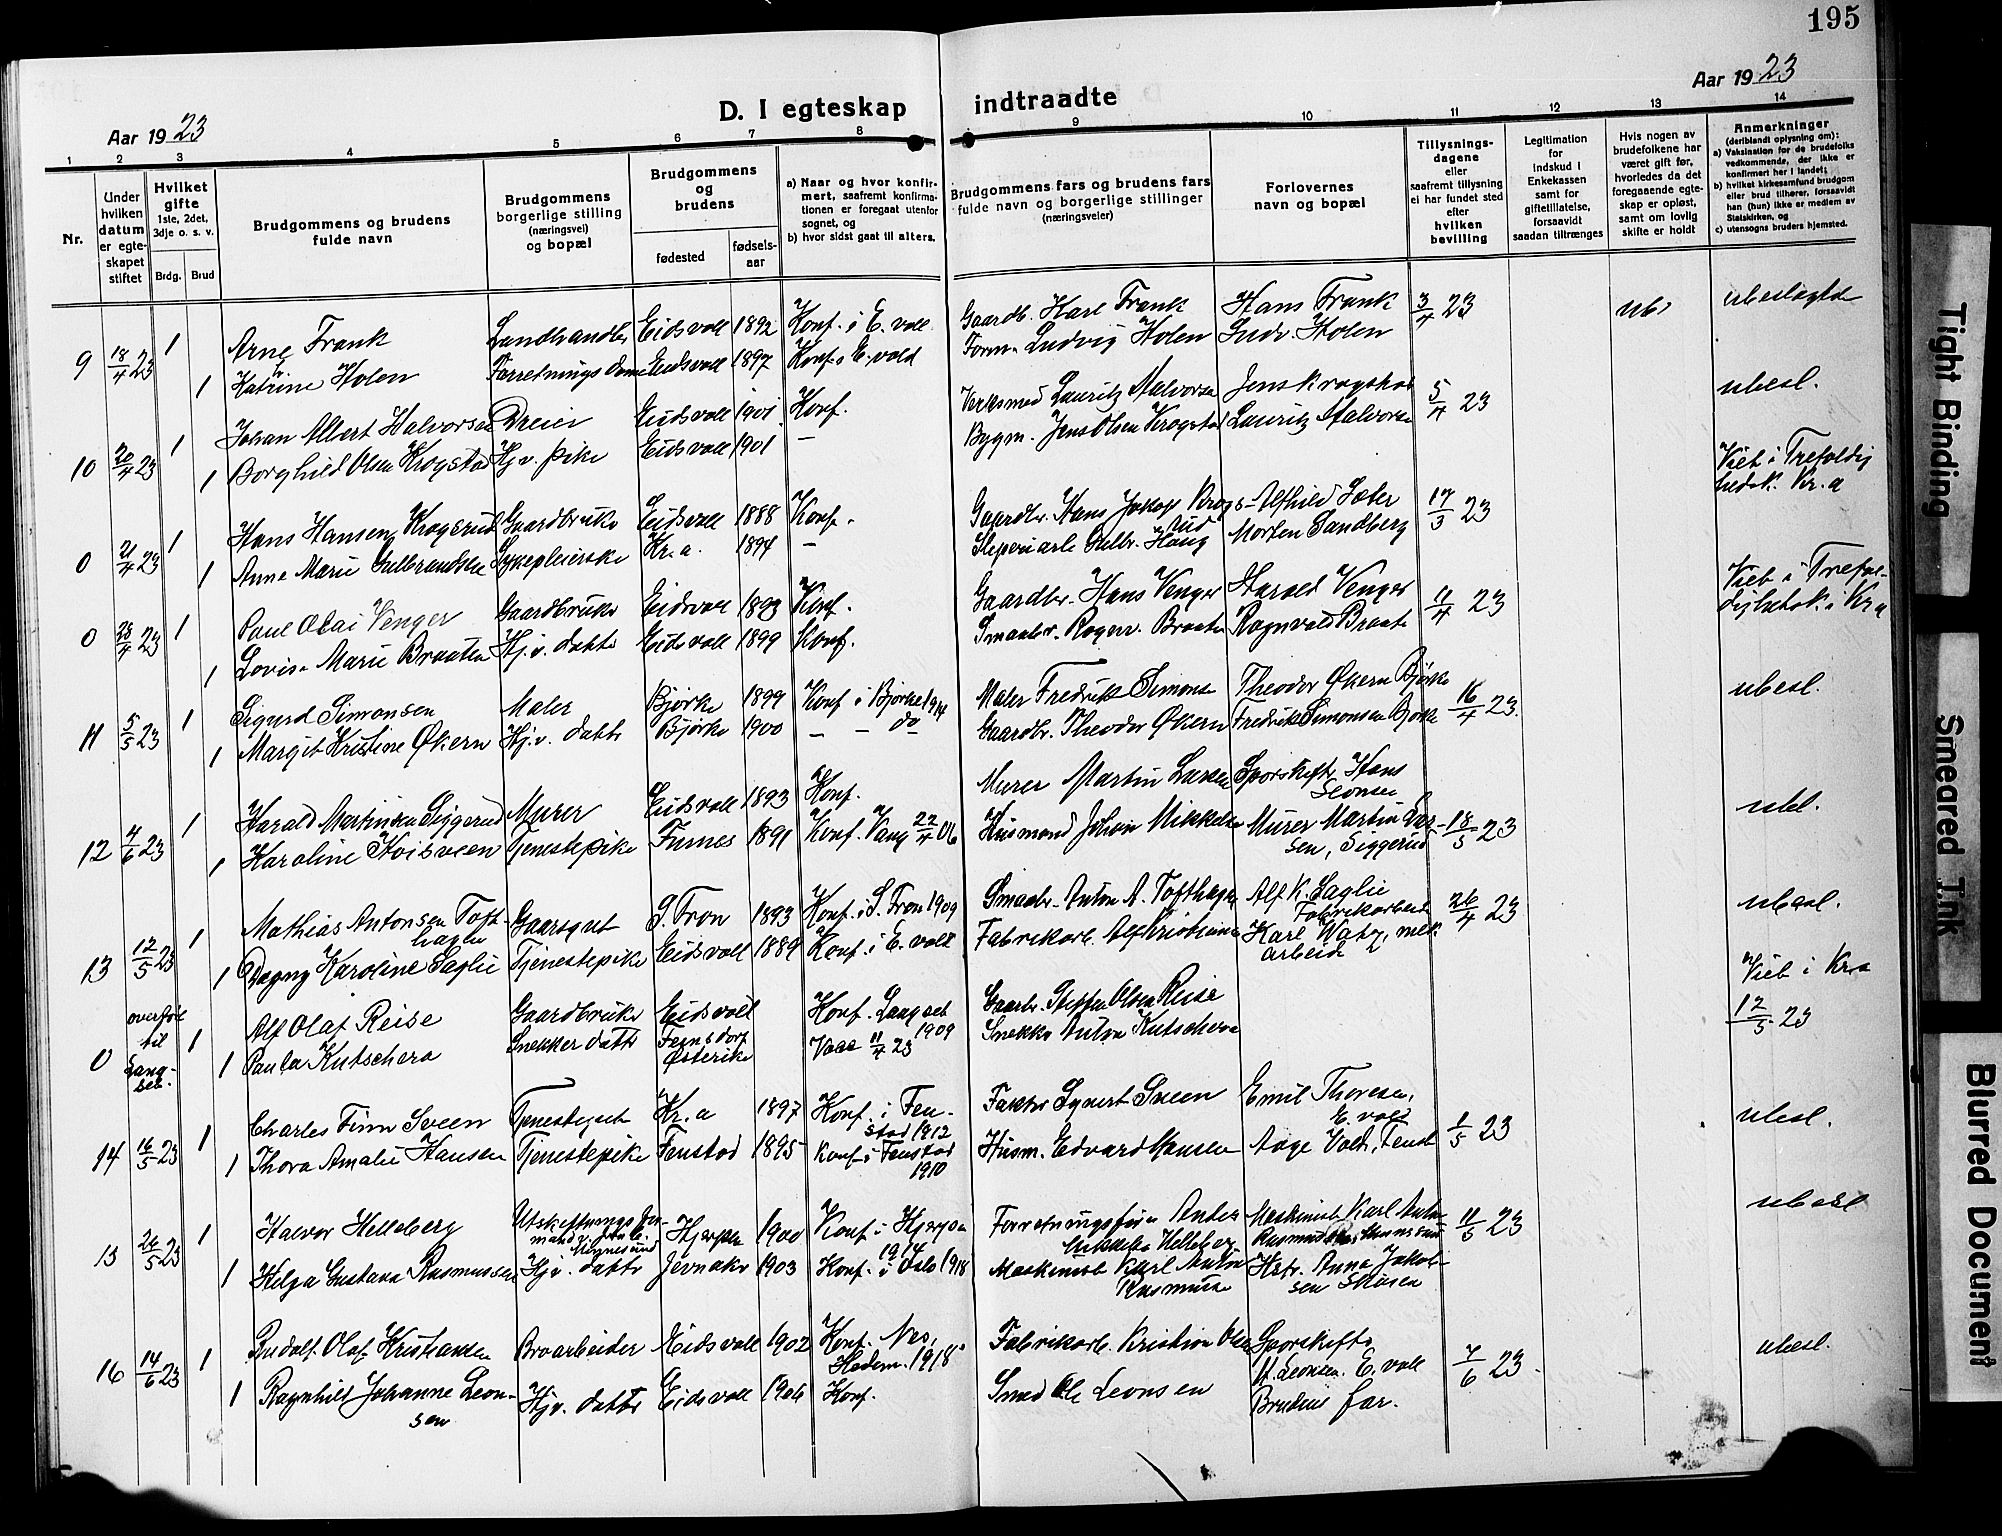 195
D. I egteskap indtraadte
Aar 1923
Aar 1923
1 2 3 4 5 6 7 8 9 10 11 12 13 14
Nr.
Under hvilken datum er egteskapet stiftet
Hvilket gifte 1ste, 2det, 3dje o. s. v.
Brdg. Brud
Brudgommens og brudens fulde navn
Brudgommens borgerlige stilling (næringsvei) og bopæl
Brudgommens og brudens
fødested
fødsels-aar
a) Naar og hvor konfirmert, saafremt konfirmationen er foregaat utenfor sognet, og
b) hvor sidst gaat til alters.
Brudgommens fars og brudens fars fulde navn og borgerlige stillinger (næringsveier)
Forlovernes navn og bopæl
Tillysningsdagene eller saafremt tillysning ei har fundet sted efter hvilken bevilling
Legitimation for indskud i Enkekassen samt for giftetillatelse, forsaavidt saadan tiltrænges
Hvis nogen av brudefolkene har været gift før, hvorledes da det foregaaende egteskap er opløst, samt om lovlig skifte er holdt
Anmerkninger (deriblandt oplysning om):
a) Vaksination for de brudefolks vedkommende, der ikke er konfirmert her i landet;
b) hvilket kirkesamfund brudgom eller brud tilhører, forsaavidt han (hun) ikke er medlem av Statskirken, og
c) utensogns bruders hjemsted.
9 18/4 23 1 Arne Frank Landhandler Eidsvoll 1892 Konf. i E. voll Gaardb. Karl Frank Hans Frank 3/4 23 ubeslagtet
1 Katrine Holen Forretningsdame Eidsvoll 1897 Konf. i E. vold Form. Ludvig Holen Ludv. Holen
10 20/4 23 1 Johan Albert Halvorsen Dreier Eidsvoll 1901 Konf. Verksmed Lauritz Halvorsen Jens Krogstad 5/4 23 ubesl.
1 Borghild Olsen Krogstad Hj.v. pike Eidsvoll 1901 — Bygm. Jens Olsen Krogstad Lauritz Halvorsen
0 21/4 23 1 Hans Hansen Krogsrud Gaardbruker Eidsvoll 1888 Konf. Gaardbr. Hans Jakob Krogsrud Alfhild Sæter 17/3 23 Viet i Trefoldighedsk. Kr.a
1 Anne Marie Gulbrandsen Sykepleierske Kr.a. 1894 — Gulbr. Haug Morten Sandberg
0 28/4 23 1 Paul Olai Venger Gaardbruker Eidsvoll 1893 Konf. Gaardbr. Hans Venger Harald Venger 11/4 23 Viet i Trefoldighetsk. i Kr.a
1 Lovise Marie Braaten Hj.v. datter Eidsvoll 1899 Konf. Smaabr. Ragnv. Braaten Ragnvald Braate
11 5/5 23 1 Sigurd Simonsen Maler Bjørke 1899 Konf. i Bjørke 1914 Maler Fredrik Simonsen Theodor Økern Bjørke 16/4 23 ubesl.
1 Margit Kristine Økern Hj.v. datter Bjørke 1900 — — do Gaardbr. Theodor Økern Fredrik Simonsen Bjørke
12 4/6 23 1 Harald Martinsen Siggerud Murer Eidsvoll 1893 Konf. Murer Martin Larsen Sporskifter Hans Leonsen 18/5 23 ubl.
1 Karoline Hoisveen Tjenestepike Furnes 1891 Konf. Vang 22/4 06 Husmand Johan Mikkelsen Murer Martin Larsen, Siggerud
13 12/5 23 1 Mathias Antonsen Tofthagen Gaarsgut S. Fron 1893 Konf. i S. Fron 1909 Smaabr. Anton A. Tofthagen Alf K. Saglie Fabrikarbeid. 26/4 23 ubesl.
1 Dagny Karoline Saglie Tjenestepike Eidsvoll 1889 Konf. i E. voll Fabrikarb. Karl arbeider
0 overført til Langset. 1 Alf Olaf Reise Gaardbruker Eidsvoll Konf. Langset 1909 Gaarbr. Steffen Olsen Reise Viet i Kr.a 12/5 23
1 Paula Kutschera Snekker datter Østerike 11/4 23 Snekker Anton Kutschera
14 16/5 23 1 Charles Finn Sveen Tjenestegut Kr.a 1897 Konf. i Fenstad 1912 Faktor Sveen Emil Thoresen, E. vold 1/5 23 ubesl.
1 Thora Amalie Hansen Tjenestepike Fenstad 1895 Konf. i Fenstad 1910 Husm. Edvard Hansen Aage Vold, Fenst
15 26/5 23 1 Halvor Helleberg Utskiftningsformand Minnesund 1900 Konf. i 1914 Forretningsfører Anders Helleberg Maskinist Karl Anton Rasmussen 11/5 23 ubesl
1 Helga Gustava Rasmussen Hj.v. datter Jevnaker 1903 Konf. i Oslo 1918 Maskinist Karl Anton Rasmussen Anna Jakobsen
16 14/6 23 1 Rudolf Olaf Kristiansen Broarbeider Eidsvoll 1902 Konf. Nes, Hedem. 1918 Fabrikarb. Kristian Olsen Sporskifter H. Leonsen. E. voll 7/6 23 ubesl.
1 Ragnhild Johanne Leonsen Hj.v. datter Eidsvoll 1906 Konf. Smed Ole Leonsen Brudens far.
Tight Binding
Smeared Ink
Blurred Document